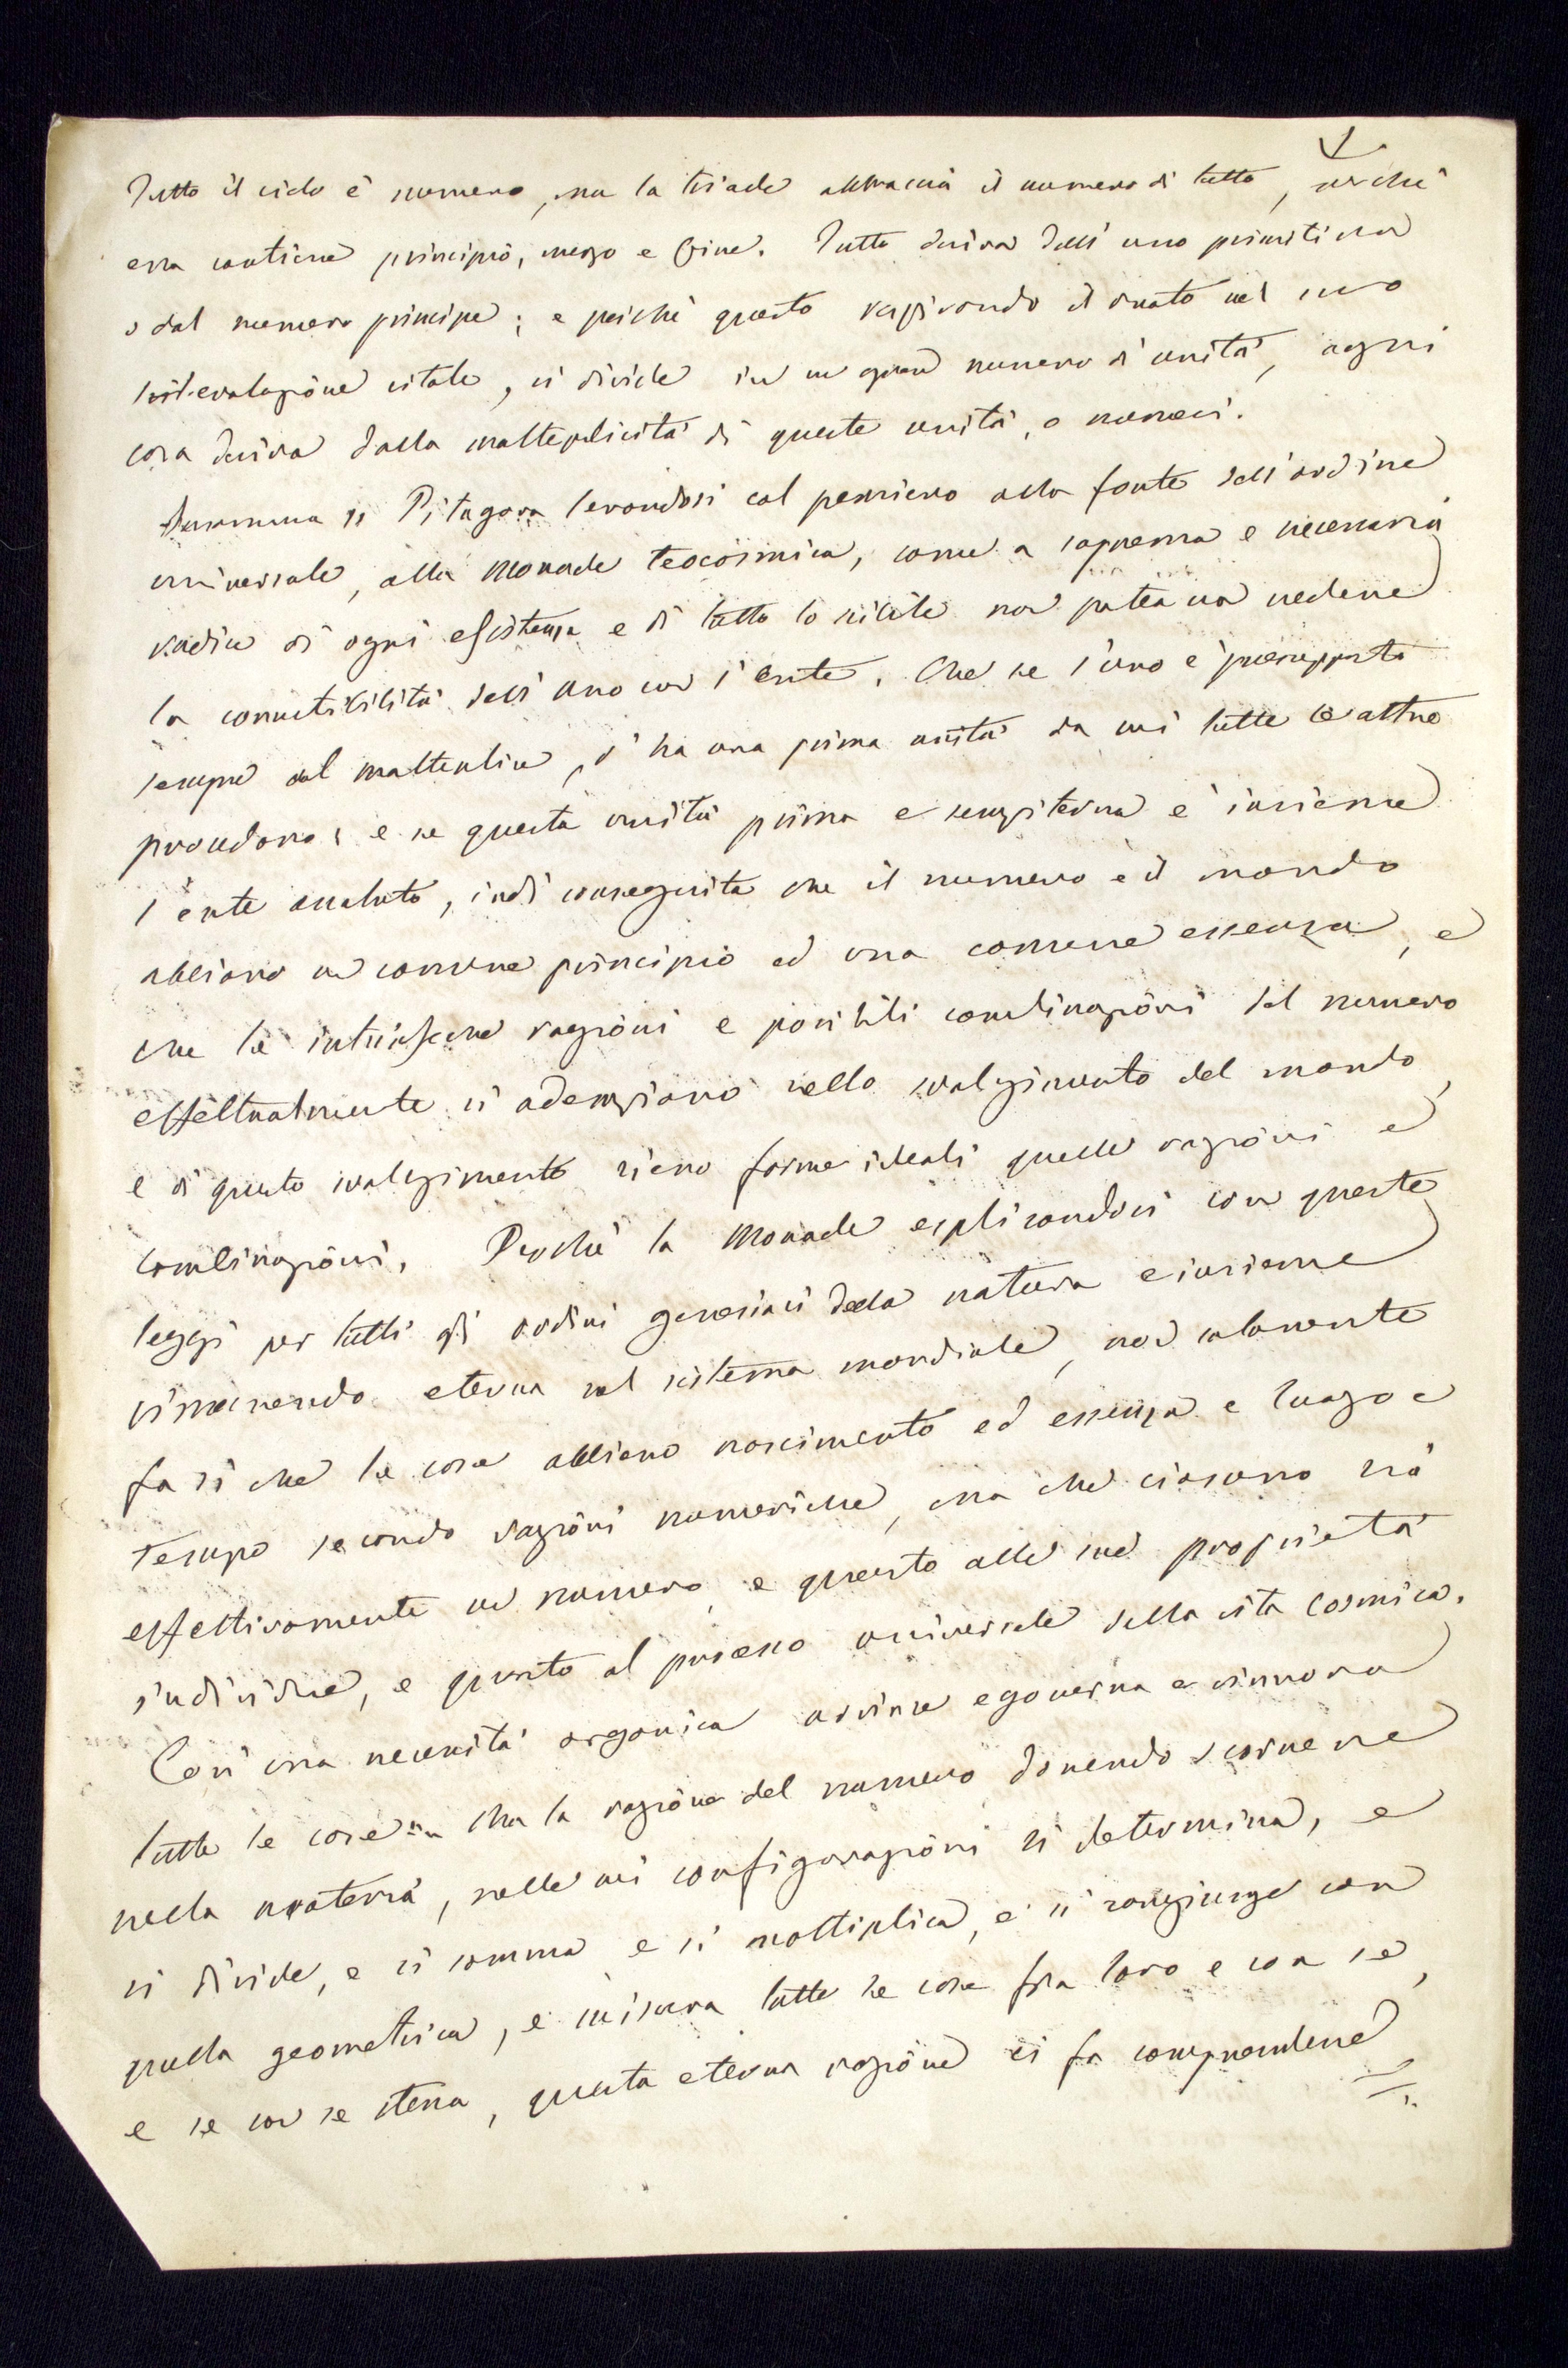 Tutto il cielo è numero, ma la triade abbraccia il numero di tutto, perchè
essa contiene principio, mezzo e fine. Tutto deriva dall'uno primitivo
o dal numero principe; e poichè questo respirando il vuoto nel suo
vitale, si divide in un gran numero di unità, ogni
cosa deriva dalla molteplicità di queste unità, o numeri.
Insomma " Pitagora levandosi col pensiero alla fonte dell'ordine
universale, alla Monade teocosmica, come a suprema e necessaria
radice di ogni esistenza e di tutto lo scibile non poteva non vedere
la convertibilità dell'Uno con l'Ente. Che se l'uno è presupposto
sempre dal molteplice, v'ha una prima unità da cui tutte le altre
procedono: e se questa unità prima e sempiterna è insieme
l'ente assoluto, indi conseguita che il numero e il mondo
abbiano un comune principio ed una comune essenza, e
che le intrinseche ragioni e possibili combinazioni del numero
effettualmente si adempiano nello svolgimento del mondo,
e di questo svolgimento sieno forme ideali quelle ragioni e
combinazioni. Perchè la Monade esplicandosi con queste
leggi per tutti gli ordini genesiaci della natura e insieme
rimanendo eterna nel sistema mondiale, non solamente
fa sì che le cose abbiano nascimento ed essenza e luogo e
tempo secondo ragioni numeriche, ma che ciascuna sia
effettivamente un numero, e quanto alle sue proprietà
individue, e quanto al processo universale della vita cosmica.
Così una necessità organica avvince e governa e rinnova
tutte le cose " Ma la ragione del numero dovendo scorrere
nella materia, nelle cui configurazioni si determina, e
si divide, e si somma e si moltiplica, e si congiunge con
quella geometrica, e misura tutte le cose fra loro e con se,
e se con se stessa, questa eterna ragione ci fa comprendere